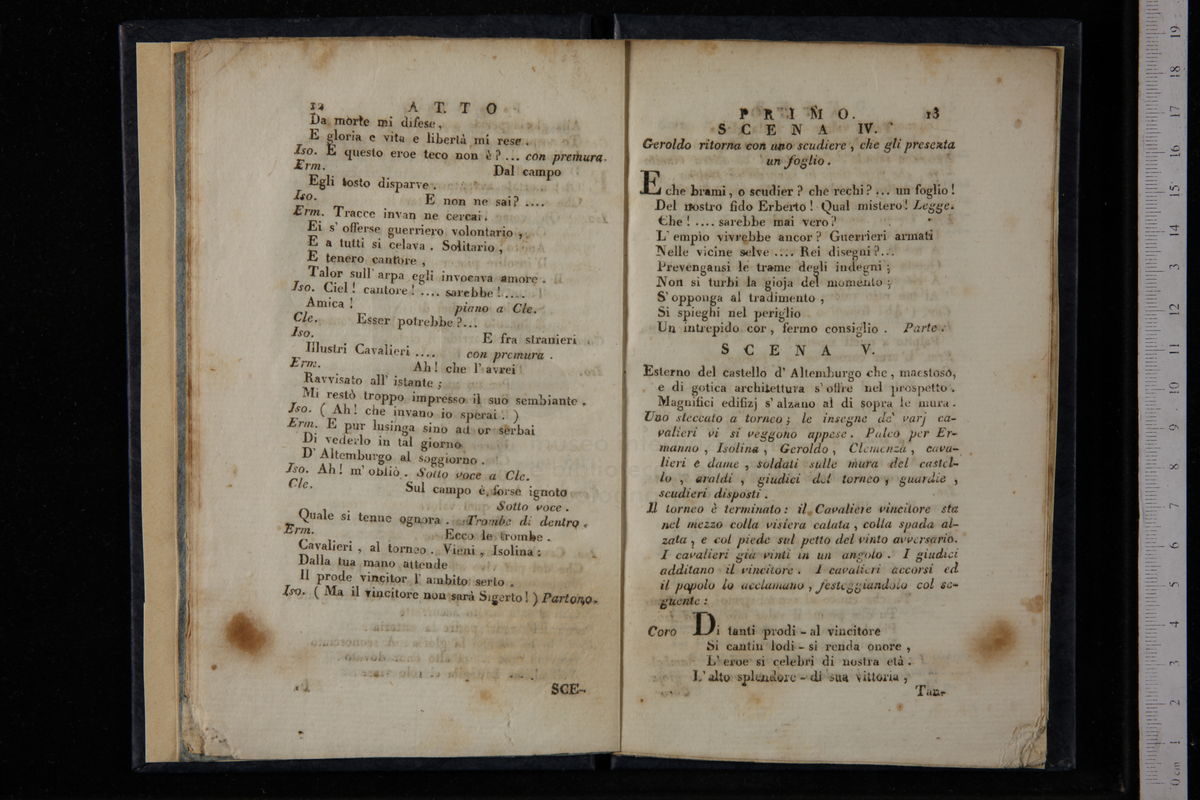 12 ATTO
Da morte mi difese,
E gloria e vita e libertà mi rese.
Iso. E questo eroe teco non è? ... con premura.
Erm. Dal campo
Egli tosto disparve.
Iso. E non ne sai? ....
Erm. Tracce invan ne cercai.
Ei s' offerse guerriero volontario,
E a tutti si celava. Solitario,
E tenero cantore,
Talor sull' arpa egli invocava amore.
Iso. Ciel! cantore! .... sarebbe!....
Amica! piano a Cle.
Cle. Esser potrebbe?...
Iso. E fra stranieri
Illustri Cavalieri .... con premura.
Erm. Ah! che l' avrei
Ravvisato all' istante;
Mi restò troppo impresso il suo sembiante.
Iso. ( Ah! che invano io sperai! )
Erm. E pur lusinga sino ad or serbai
Di vederlo in tal giorno
D' Altemburgo al soggiorno.
Iso. Ah! m' obliò. Sotto voce a Cle.
Cle. Sul campo è forse ignoto
Sotto voce.
Quale si tenne ognora. Trombe di dentro.
Erm. Ecco le trombe.
Cavalieri, al torneo. Vieni, Isolina:
Dalla tua mano attende
Il prode vincitor l' ambito serto.
Iso. ( Ma il vincitore non sarà Sigerto! ) Partono.
SCE-
PRIMO. 13
SCENA IV.
Geroldo ritorna con uno scudiere, che gli presenta
un foglio.
E che brami, o scudier? che rechi? ... un foglio!
Del nostro fido Erberto! Qual mistero! Legge.
Che! .... sarebbe mai vero?
L' empio vivrebbe ancor? Guerrieri armati
Nelle vicine selve .... Rei disegni?...
Prevengansi le trame degli indegni;
Non si turbi la gioja del momento;
S' opponga al tradimento,
Si spieghi nel periglio
Un intrepido cor, fermo consiglio. Parte.
SCENA V.
Esterno del castello d' Altemburgo che, maestoso,
e di gotica architettura s' offre nel prospetto.
Magnifici edifizj s' alzano al di sopra le mura.
Uno steccato a torneo; le insegne de' varj ca-
valieri vi si veggono appese. Palco per Er-
manno, Isolina, Geroldo, Clemenza, cava-
lieri e dame, soldati sulle mura del castel-
lo, araldi, giudici del torneo, guardie,
scudieri disposti.
Il torneo è terminato: il Cavaliere vincitore sta
nel mezzo colla visiera calata, colla spada al-
zata, e col piede sul petto del vinto avversario.
I cavalieri già vinti in un angolo. I giudici
additano il vincitore. I cavalieri accorsi ed
il popolo lo acclamano, festeggiandolo col se-
guente:
Coro Di tanti prodi - al vincitore
Si cantin lodi - si renda onore,
L' eroe si celebri di nostra età.
L' alto splendore - di sua vittoria,
Tan-